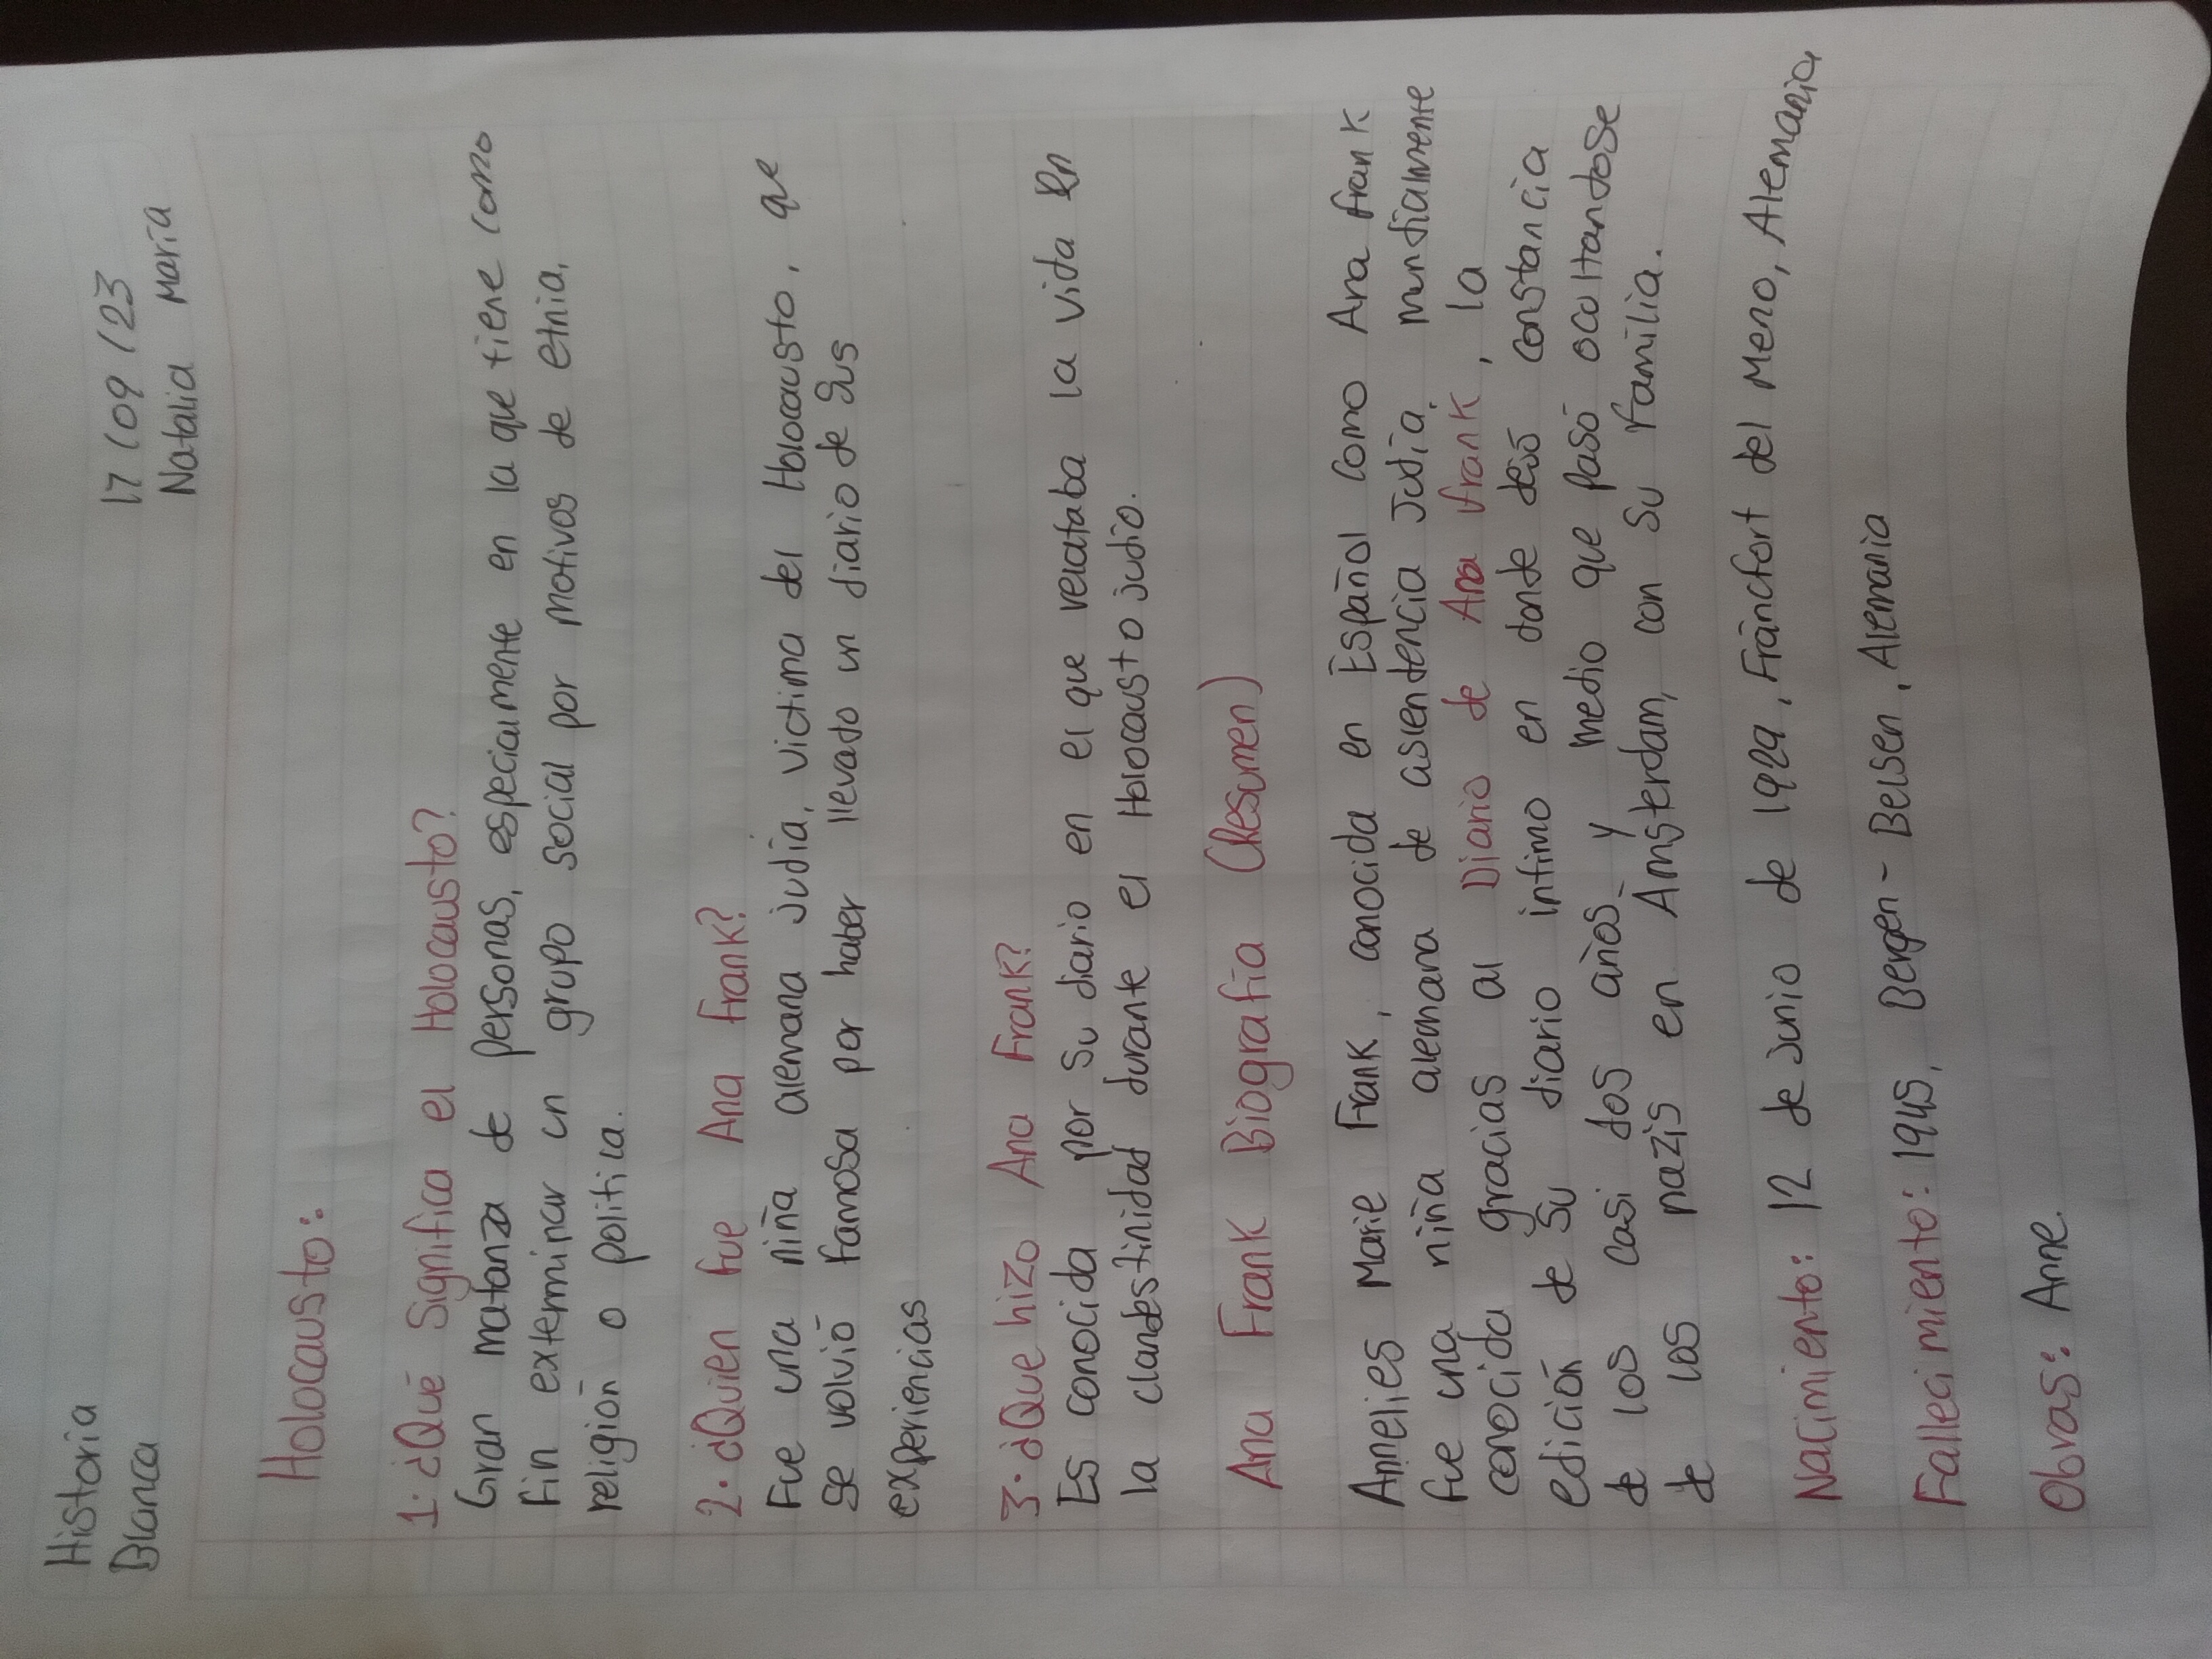 Historia
Blanca
17/09/23
Natalia María
Holocausto:
1. ¿Qué significa el Holocausto?
Gran matanza de personas, especialmente en la que tiene como
fin exterminar un grupo social por motivos de etnia,
religión o politica.
2. ¿Quien fue Ana Frank?
Fue una niña alemana judía, victima del Holocausto, que
se volvió famosa por haber llevado un diario de sus
experiencias
3. ¿Que hizo Ana Frank?
Es conocida por su diario en el que relataba la vida en
la clandestinidad durante el Holocausto judio.
Ana Frank Biografía (Resumen)
Annelies Marie Frank, conocida en Español como Ana Frank
fue una niña alemana de asiendencia Judía, mundialmente
conocida gracias al Diario de Ana Frank, la
edición de su diario intimo en donde dejó constancia
de los casi dos años y medio que pasó ocultandose
de los nazis en Amsterdam, con su familia.
Nacimiento: 12 de junio de 1929, Fráncfort del Meno, Alemania
Fallecimiento: 1945, Bergen-Belsen, Alemania
Obras: Anne.